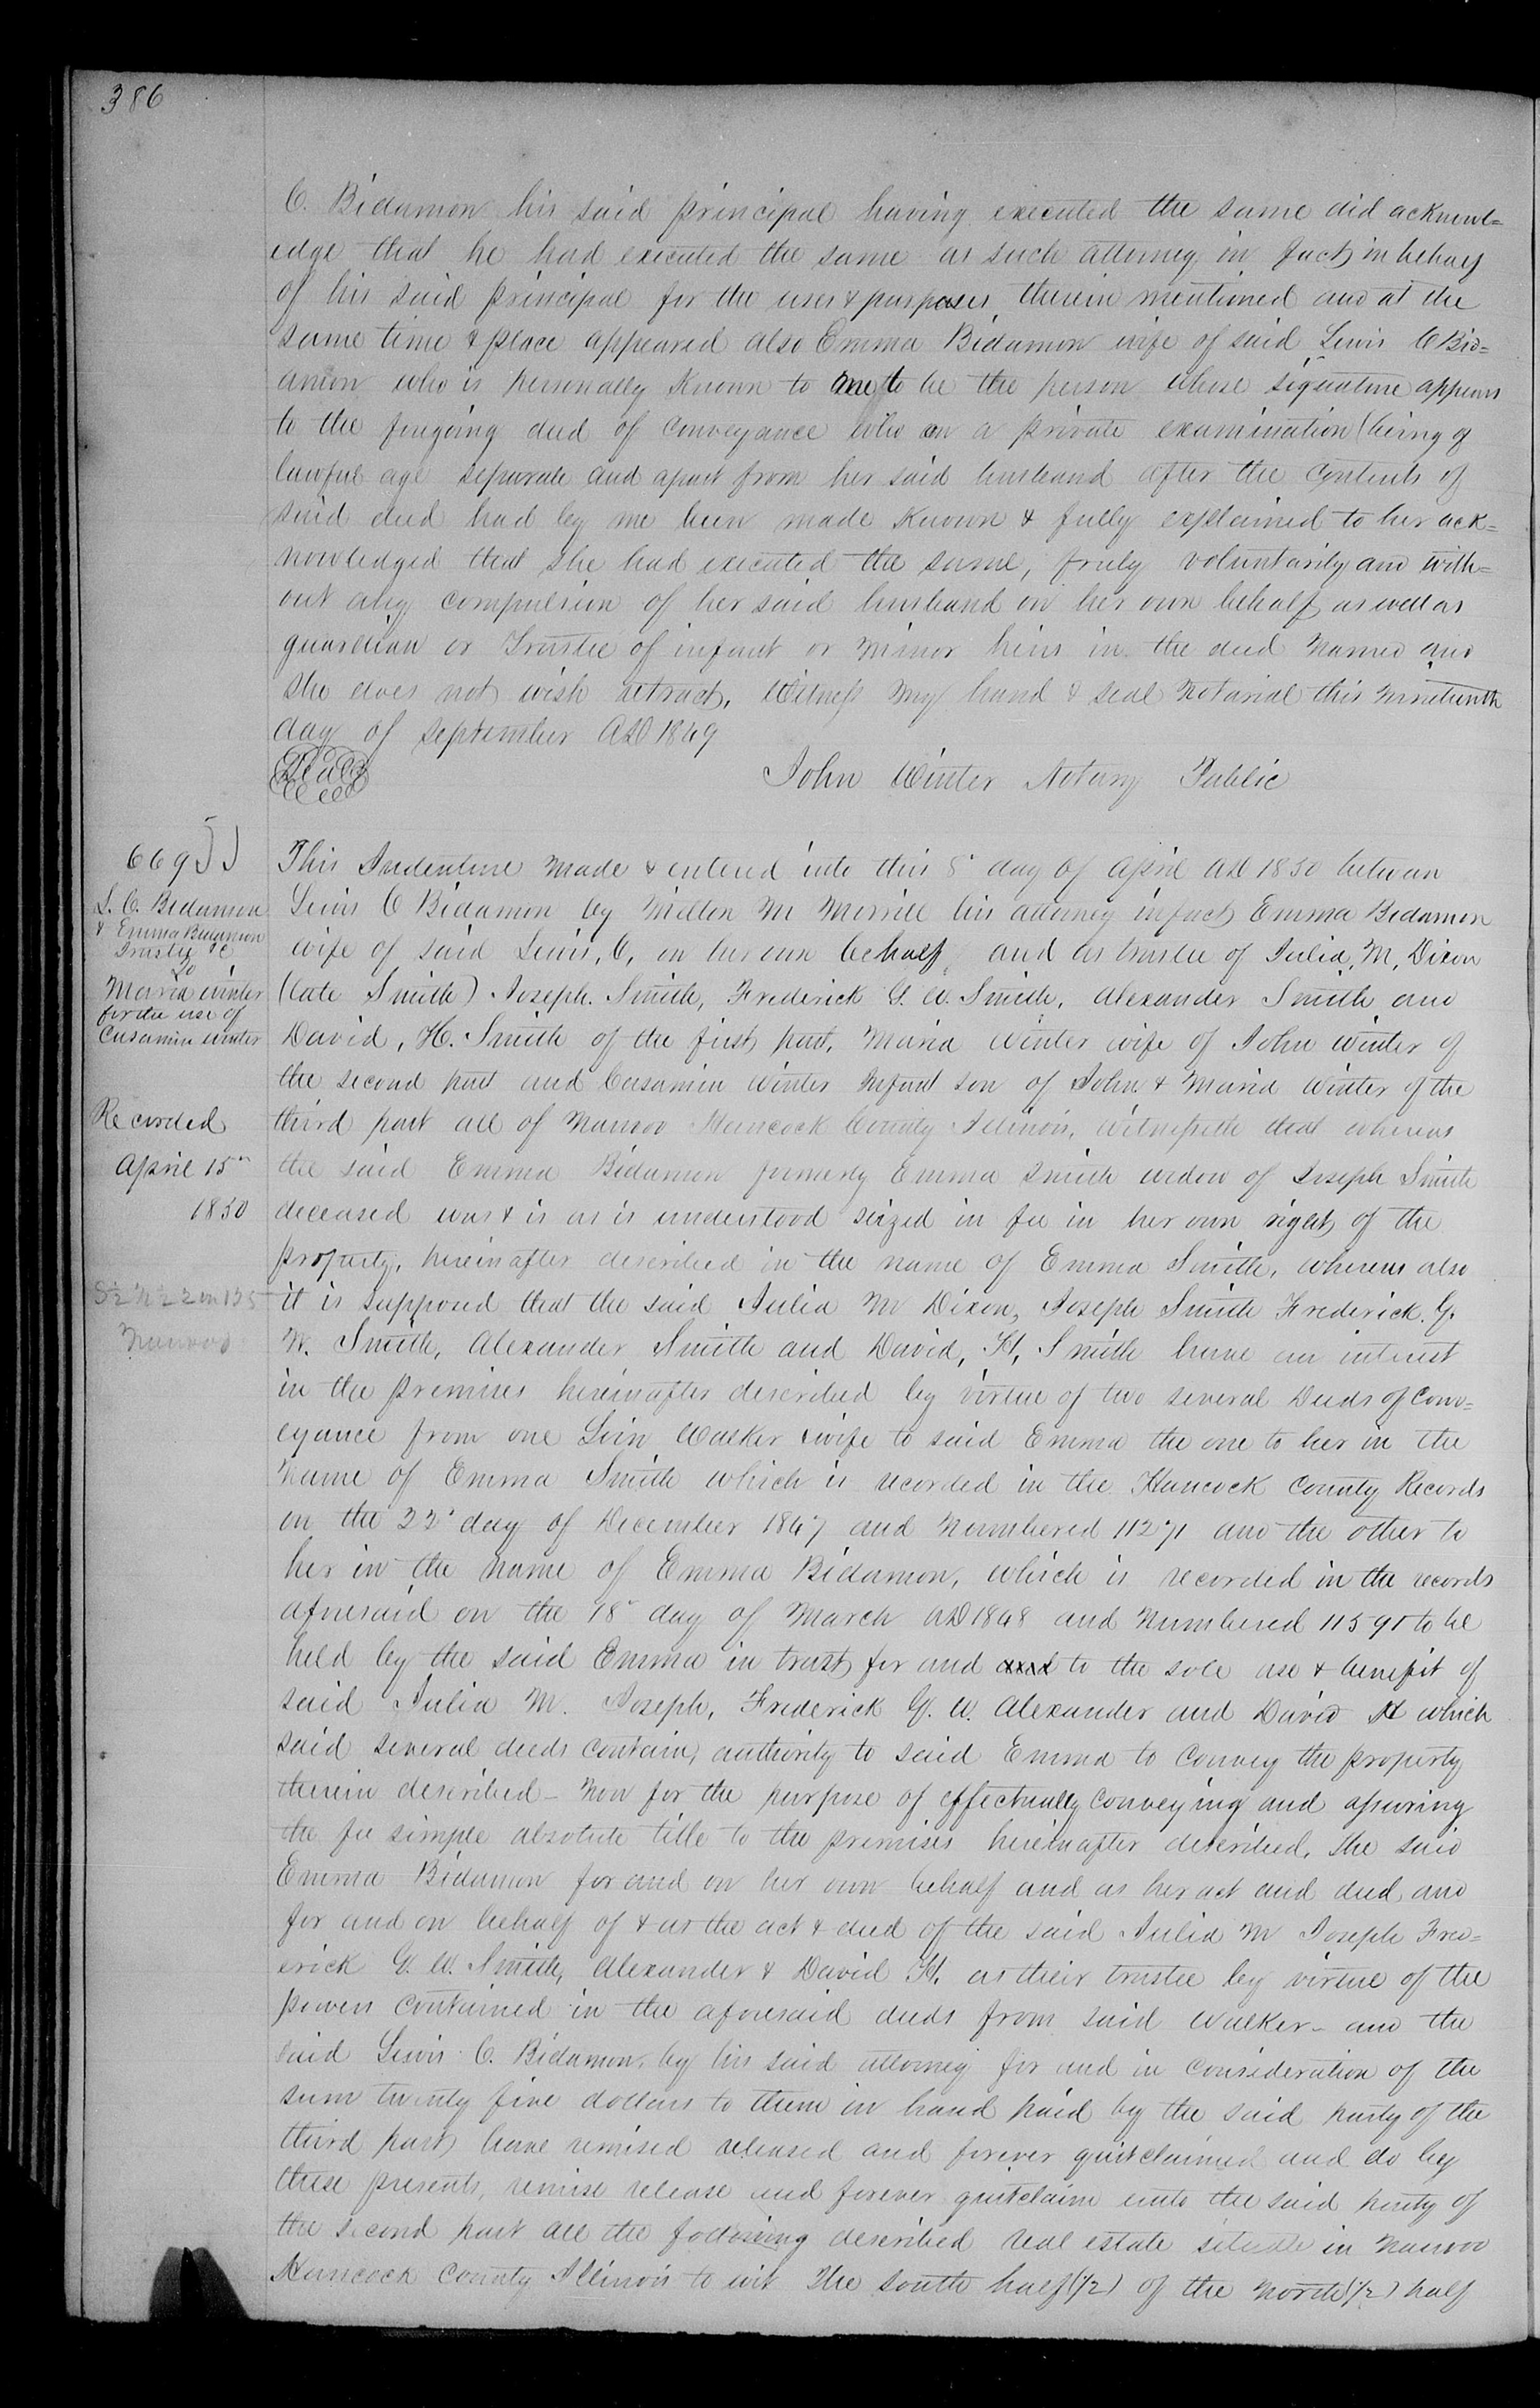 386
C. Bidamon his said principal having executed the same did acknowl=
edge that he had executed the same as such attorney in fact in behalf
of his said principal for the uses & purposes therein mentioned and at the
same time & place appeared also Emma Bidamon wife of said Lewis C Bid=
amon who is personally known to me to be the person whose signature appears
to the foregoing deed of conveyance who on a private examination (being of
lawful age separate and apart from her said husband after the contents of
said deed had by me been made known & fully explained to her ack=
nowledged that she had executed the same, freely voluntarily and with=
out any compulsion of her said husband on her own behalf as well as
guardian or Trustee of infant or minor heirs in the deed named and
she does not wish retract. Witness my hand & seal Notarial this nineteenth
day of September AD 1849
Seal
John Winter Notary Public
669
L. C. Bidamon
& Emma Bidamon
Trustee &c
To
Maria Winter
for the use of
Casamin Winter
Recorded
April 15th
1850
S½ N½ 2 in 135
Nauvoo
This Indenture made & entered into this 8" day of April AD 1850 between
Lewis C Bidamon by Milton M Morrill his attorney infact, Emma Bidamon
wife of said Lewis, C, on her own behalf, and as trustee of Julia, M, Dixon
(late Smith) Joseph. Smith, Frederick G. W. Smith, Alexander Smith and
David, H. Smith of the first part, Maria Winter wife of John Winter of
the second part and Casamin Winter Infant son of John & Maria Winter of the
third part all of Nauvoo Hancock County Illinois, Witnesseth that whereas
the said Emma Bidamon formerly Emma Smith widow of Joseph Smith
deceased was & is as is understood seized in fee in her own right of the
property, hereinafter described in the name of Emma Smith, whereas also
it is supposed that the said Julia M Dixon, Joseph Smith Frederick. G.
W. Smith, Alexander Smith and David, H, Smith have an interest
in the premises hereinafter described by virtue of two several Deeds of Conv=
eyance from one Loin Walker & wife to said Emma the one to her in the
name of Emma Smith which is recorded in the Hancock County Records
on the 22" day of December 1847 and Numbered 11271 and the other to
her in the name of Emma Bidamon, which is recorded in the records
aforesaid on the 18" day of March AD 1848 and Numbered 11591 to be
held by the said Emma in trust for and and to the sole use & benefit of
said Julia M. Joseph, Frederick G. W. Alexander and David H which
said several deeds contain, authority to said Emma to convey the property
therein described - Now for the purpose of effectually conveying and assuring
the fee simple absolute title to the premises hereinafter described, the said
Emma Bidamon for and on her own behalf and as her act and deed and
for and on behalf of & as the act & deed of the said Julia M Joseph Fred=
erick G. W. Smith, Alexander & David H, as their trustee by virtue of the
powers contained in the aforesaid deeds from said Walker - and the
said Lewis C. Bidamon, by his said attorney for and in consideration of the
sum twenty five dollars to them in hand paid by the said party of the
third part, have remised released and forever quitclaimed and do by
these presents, remise release and forever quitclaim unto the said party of
the second part all the following described real estate situate in Nauvoo
Hancock County Illinois to wit The south half (1/2) of the North (1/2) half